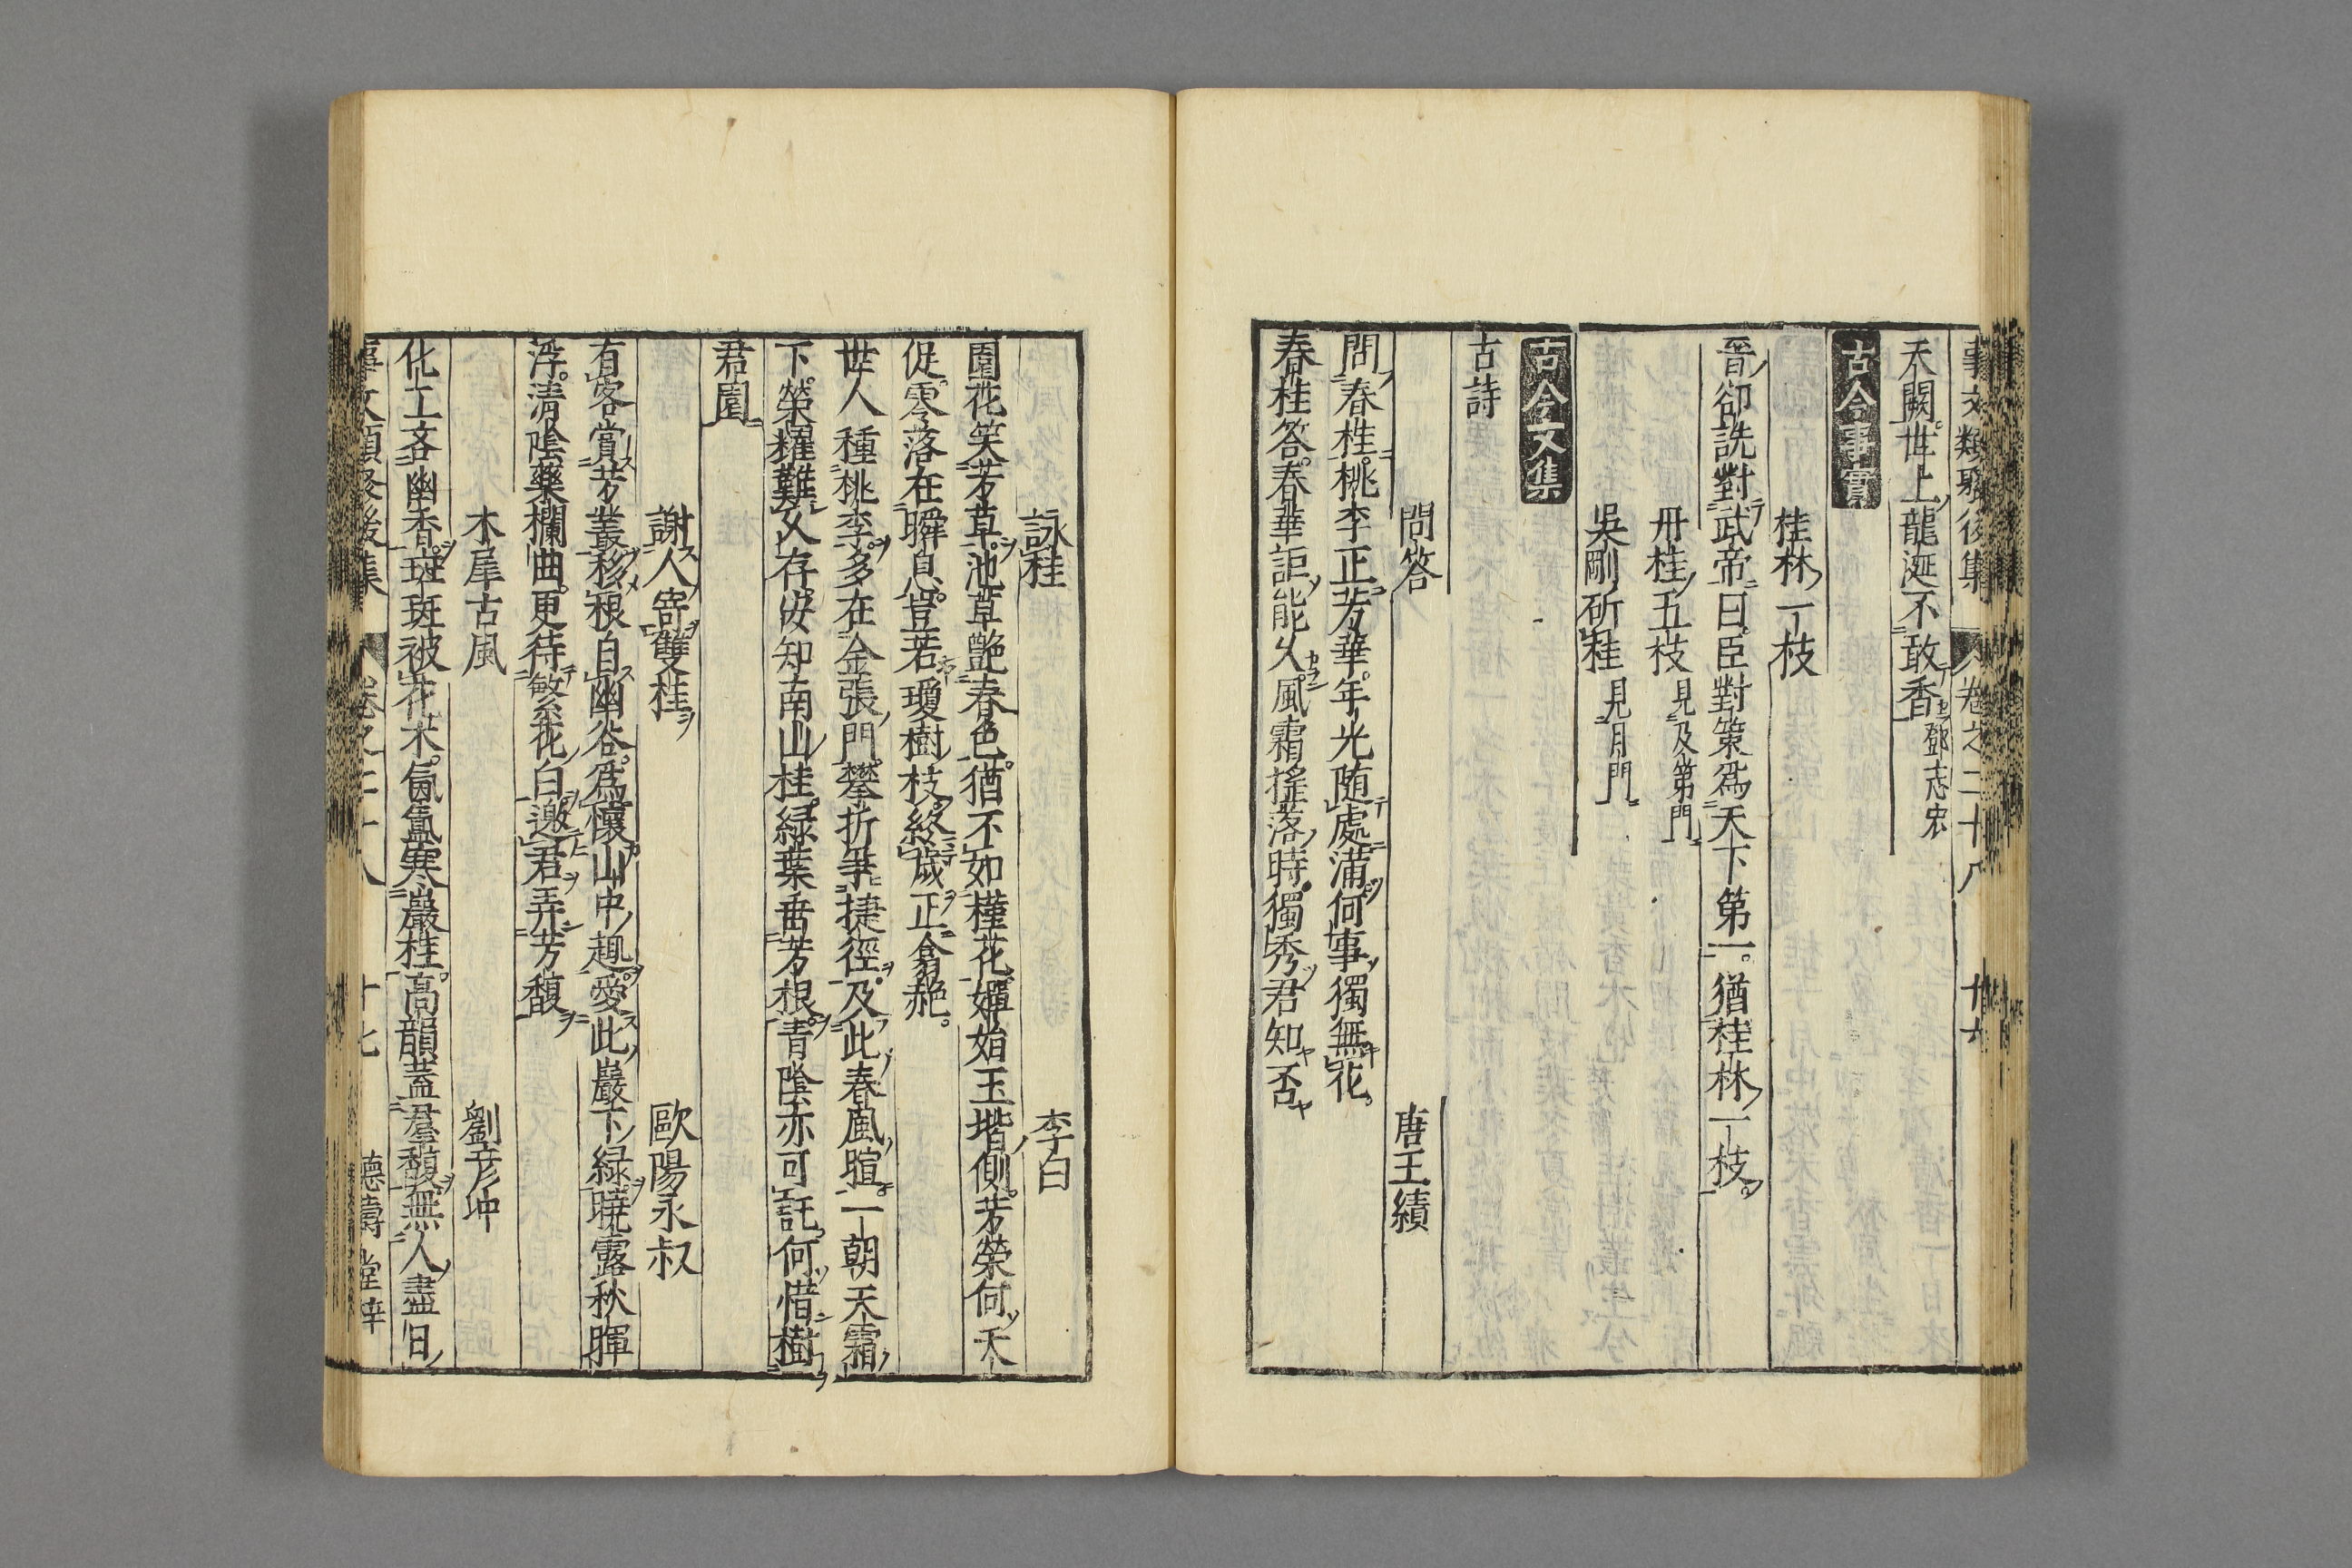 事文類聚後集 卷之二十八 廿六
天闕世上龍涎不敢香鄧志宏
古今事實
桂林一枝
晉郤詵對武帝曰臣對策爲天下第一。猶桂林一枝。
丹桂五枝見及第門
吳剛斫桂見月門
古今文集
古詩
問答 唐王績
問春桂。桃李正芳華。年光随處滿。何事獨無花。
春桂答。春華詎能久。風霜搖落時。獨秀君知否
詠桂 李白
園花笑芳草。池草艶春色。猶不如槿花。嬋姢玉堦側。芳榮何夭
促。零落在瞬息。豈若瓊樹枝。終歲正翕赩。
世人種桃李。多在金張門。攀折爭捷徑。及此春風暄。一朝天霜
下。榮耀難久存。安知南山桂。綠葉垂芳根。青陰亦可託。何惜樹
君園
謝人寄雙桂 歐陽永叔
有客賞芳叢移根自幽谷。爲懷山中趣。愛此巖下綠。曉露秋暉
浮。清陰藥欄曲。更待繁花白邀君弄芳馥
木犀古風 劉彥冲
化工吝幽香。斑斑被花木。氤氳寒巖桂。高韻蓋羣馥。無人盡日
事文類聚後集 卷之二十八 廿七 德壽堂梓